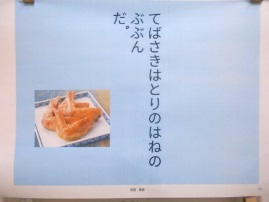 てばさきはとりのはねの
ぶぶん
だ。